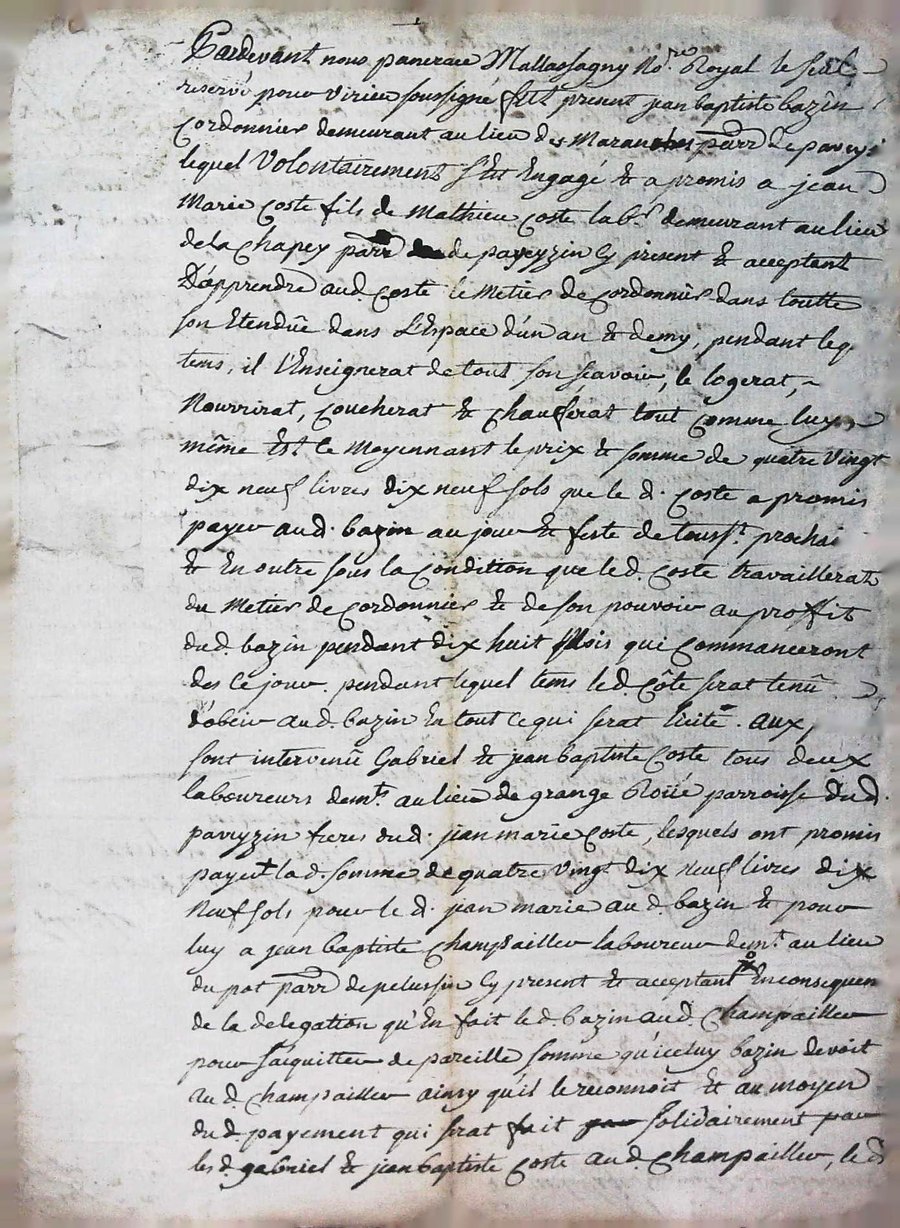 Pardevant nous pancrace Mallassagny No.re Royal le seul
reservé pour virieu soussigné fut present jean baptiste bazin
Cordonnier demeurant au lieu des parr de paveyz:
lequel Volontairement s'est Engagé & a promis a jean
Marie Coste fils de Mathieu Coste lab.r demeurant au lieu
de la Chapey parr de paveyzin Cy present & acceptant
D'apprendre aud. Coste le Metier de Cordonnier dans toutte
son Etendüe dans L'Espace d'un an & demy, pendant leq.
tems, il l'Enseignerat de tout son scavoir, le logerat,
Nourrirat, coucherat & chauferat tout comme luy
même Est Ce Moyennant le prix & somme de quatre Vingt
dix neuf livres dix neuf sols que le d. Coste a promis
payer aud. bazin au jour & feste de touss.t prochai
& En outre sous la Condition que led. Coste travaillerat
du Metier de Cordonnier & de son pouvoir au proffit
dud. bazin pendant dix huit Mois qui Commanceront
des Ce jour. pendant lequel tems led. Côte serat tenû
d'obeir aud. bazin En tout Ce qui serat licite. aux,
sont intervenû Gabriel & jean baptiste Coste tous deux
laboureurs dem.ts au lieu de grange Roüé parroisse dud.
paveyzin freres dud. jean marie Coste, lesquels ont promis
payer la d. somme de quatre Vingt dix neuf livres dix
Neuf sols pour le d. jean marie au d. bazin & pour
luy a jean baptiste Champailler laboureur dem.t au lieu
du pat parr de pelussin Cy present & acceptant En consequen
de la delegation qu'En fait led. bazin aud. Champailler
pour s'acquitter de pareille somme qu'iceluy bazin devoit
au d. Champailler ainsy qu'il le reconnoit & au moyen
du d. payement qui serat fait solidairement par
les d. gabriel & jean baptiste Coste au d. Champailler, le d.